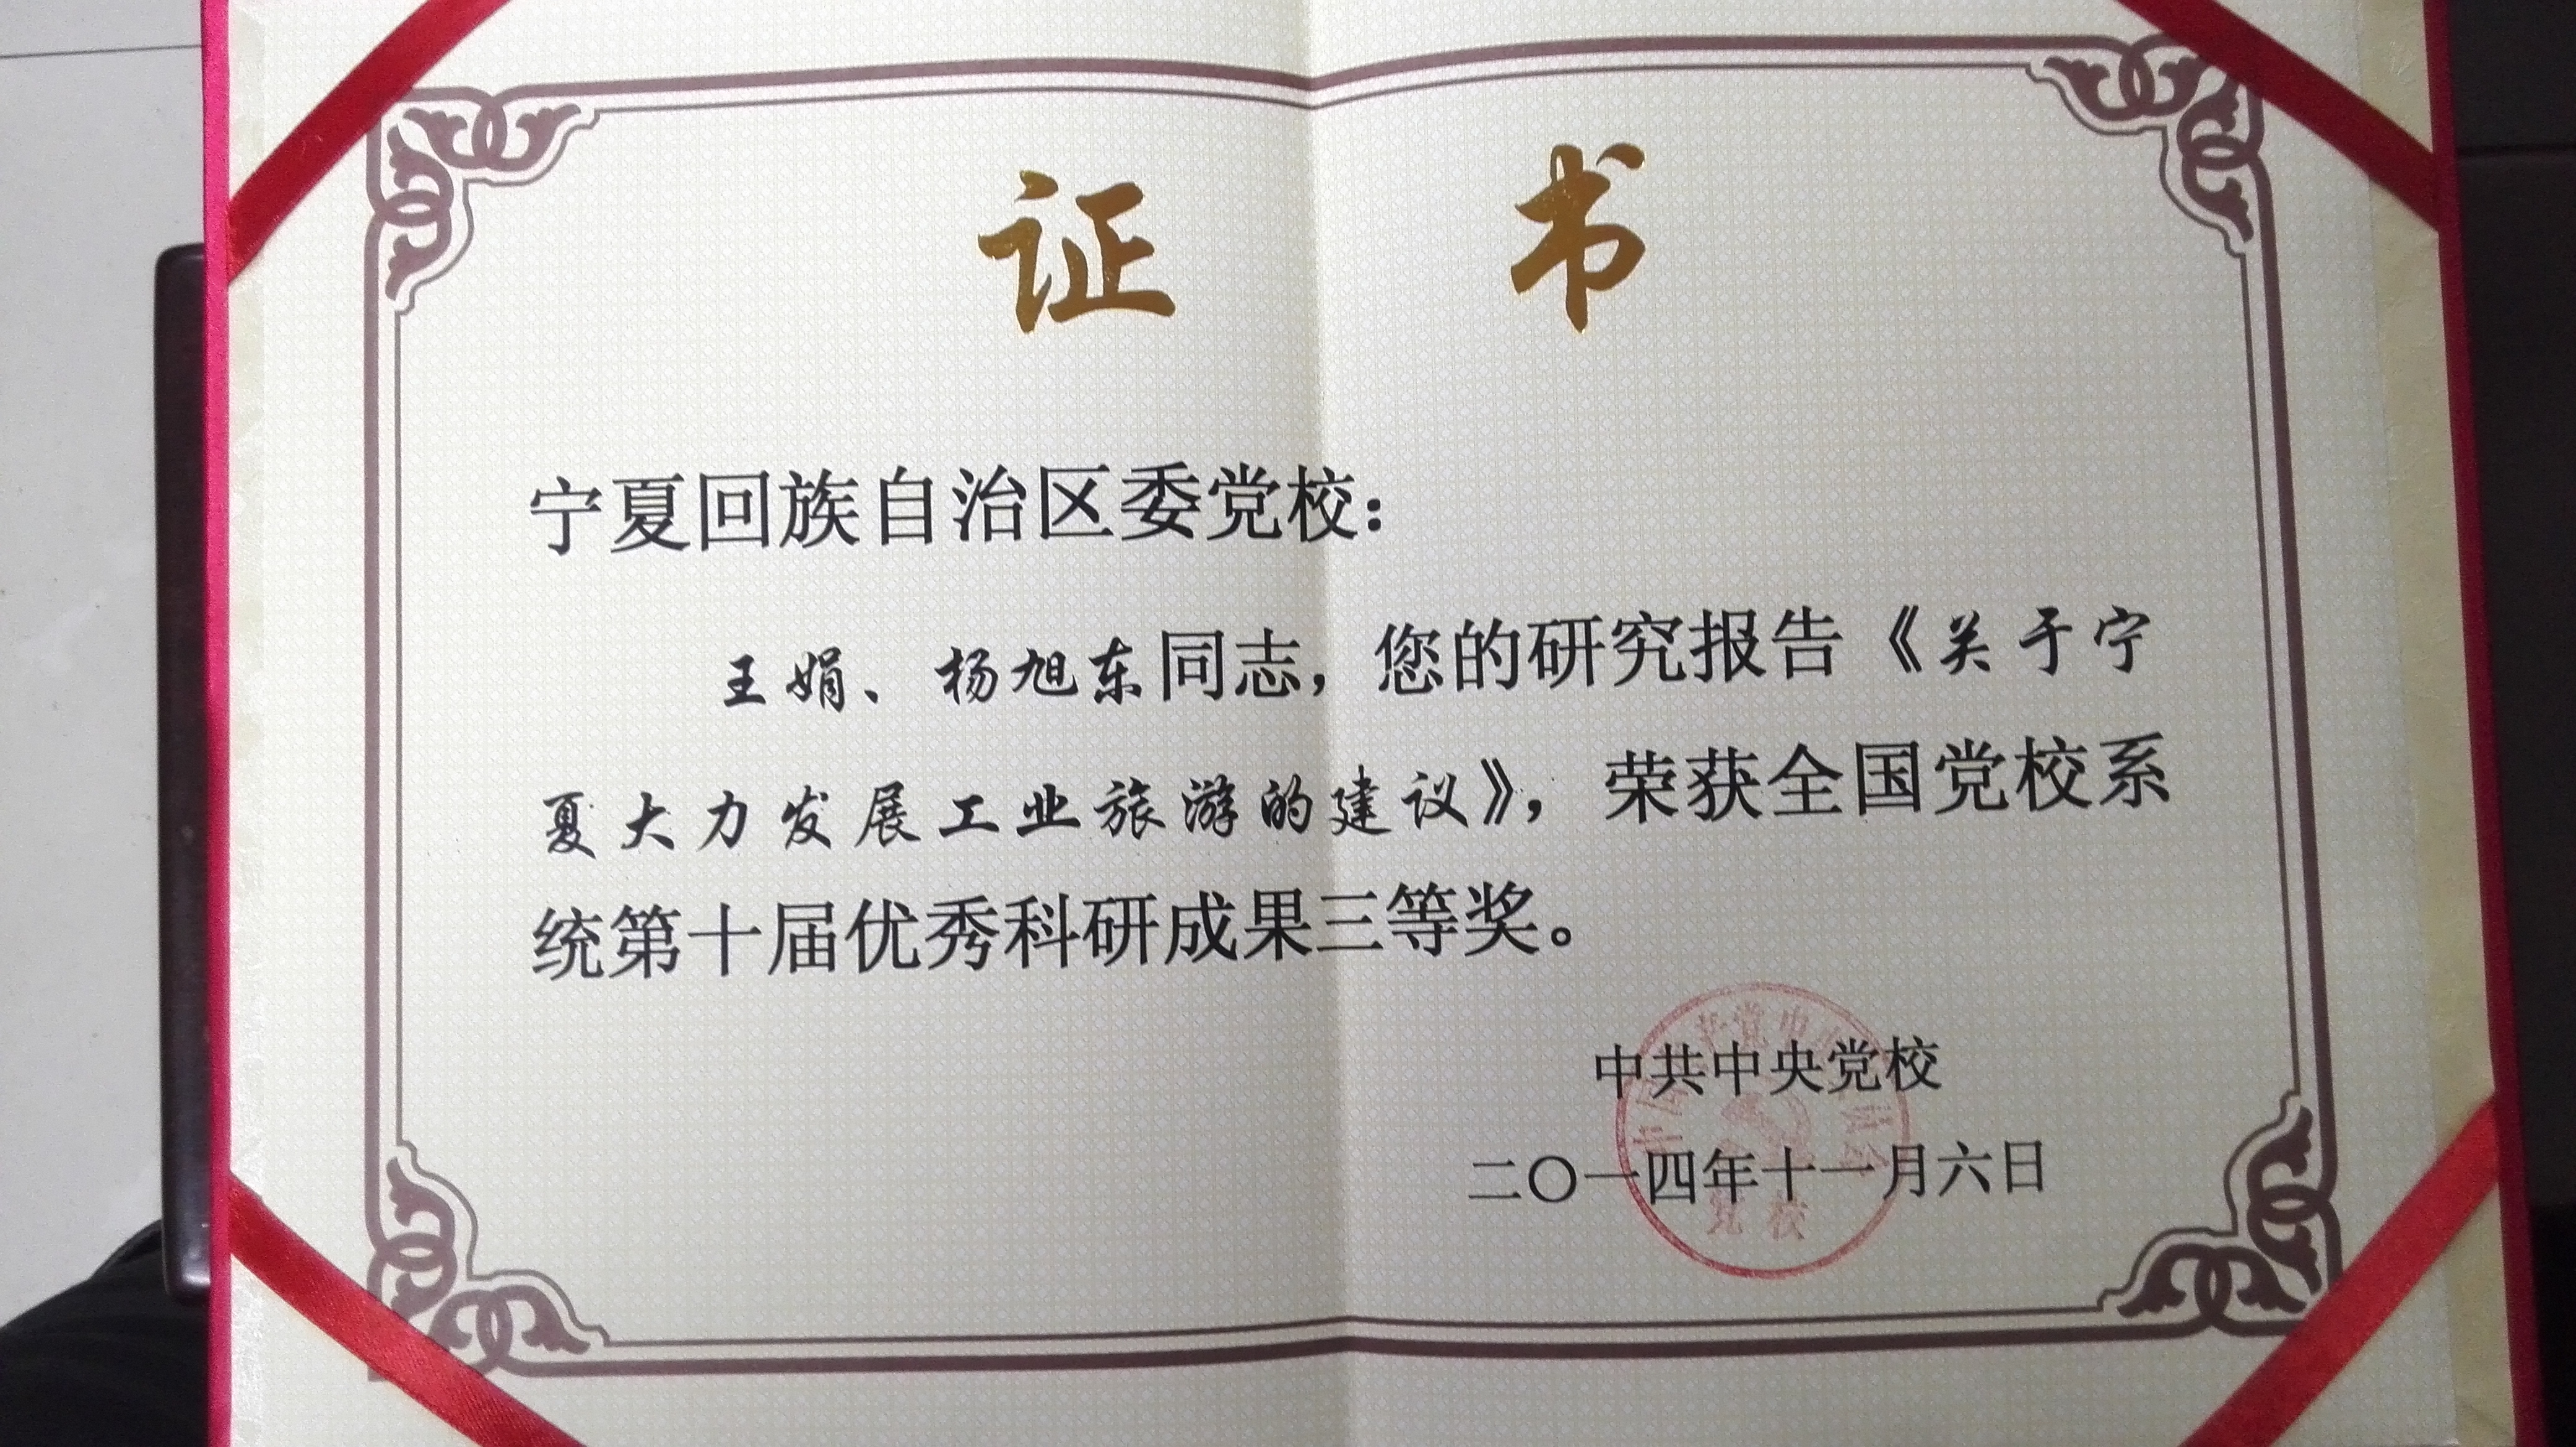 证书
宁夏回族自治区委党校:
王娟、杨旭东同志，您的研究报告《关于宁
夏大力发展工业旅游的建议》，荣获全国党校系
统第十届优秀科研成果三等奖。
中共中央党校
二〇一四年十一月六日
党校